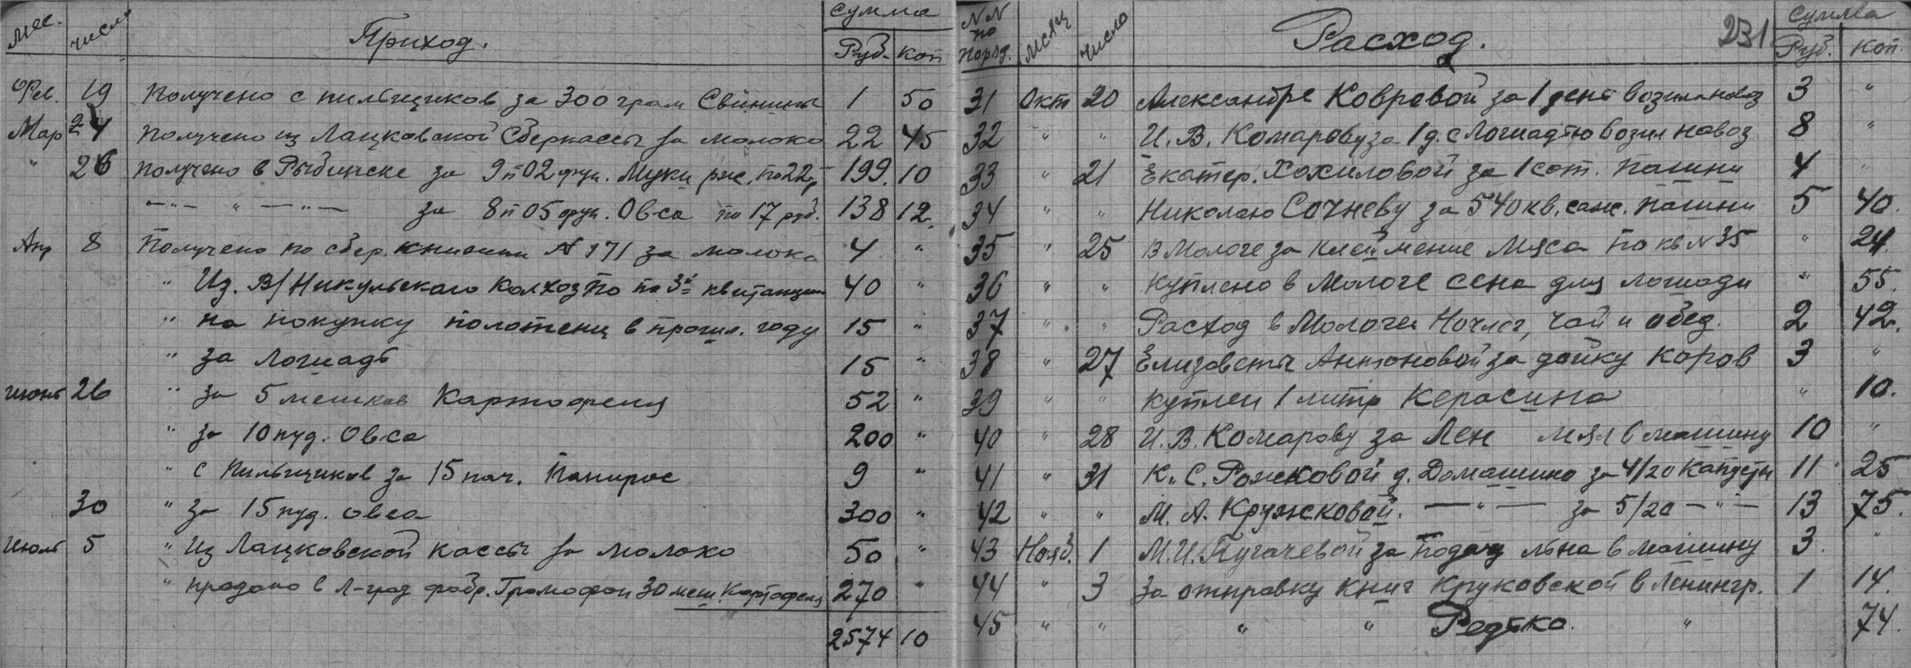 Мес. число Приход. сумма
Руб. Коп
Фев. 19 Получено с пильщиков за 300 грам Свинины 1 50
Мар 24 Получено из Лацковской Сберкассы за молоко 22 45
" 26 Получено в Рыбинске за 9п 02 фун. Муки рж. по 22 р 199 10
—"— " —"— за 8п 05 фун. Овса по 17 руб. 138 12
Апр 8 Получено по сбер. книжки № 171 за молоко 4 "
" Из. В/Никульского Колхоз по 3й квитанции 40 "
" на покупку полотенц в прошл. году 15 "
" за лошадь 15 "
июнь 26 " за 5 мешков Картофеля 52 "
" за 10 пуд. Овса 200 "
" с Пильщиков за 15 пач. Папирос 9 "
30 " за 15 пуд. овса 300 "
Июль 5 " Из Лацковской кассы за молоко 50 "
" продано в Л-град фабр. Громофон 30 меш. Картофеля 270 "
2574 10
№№ по поряд. месяц число Расход. 231 сумма
Руб. Коп.
31 Окт 20 Александре Ковровой за 1 день возила навоз 3 "
32 " " И. В. Комарову за 1 д. с Лошадью возил навоз 8 "
33 " 21 Екатер. Хохиловой за 1 сот. пашни 4 "
34 " " Николаю Сочневу за 540 кв. саж. пашни 5 40.
35 " 25 В Мологе за клеймение Мяса по кв № 35 " 24.
36 " " Куплено в Мологе сена для лошади " 55.
37 " " Расход в Мологе Ночлег, чай и обед. 2 42.
38 " 27 Елизоветы Антоновой за дойку коров 3 "
39 " " Куплен 1 литр Керасина " 10.
40 " 28 И. В. Комарову за Лен мял в машину 10 "
41 " 31 К. С. Рожсковой д. Домашино за 4/20 Капусты 11 25
42 " " М. А. Кружсковой. —"— за 5/20 —"— 13 75.
43 Нояб. 1 М. И. Пугачевой за подачу льна в машину 3. "
44 " 3 За отправку книг Круковской в Ленингр. 1 14.
45 " " " " Редько. " 74.